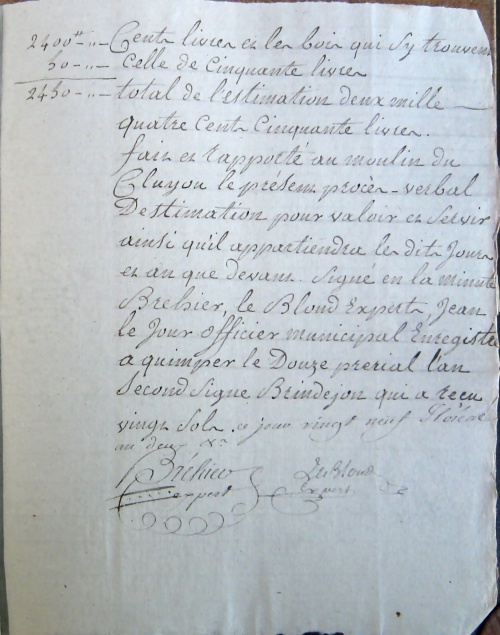 2400# -"- Cent livres et les bois qui sy trouvent
50 -"- Celle de Cinquante livres
2450 -"- total de l'estimation deux mille
quatre Cent Cinquante livres.
fait et rapporté au moulin du
Cluyou le présent procès-verbal
Destimation pour valoir et Servir
ainsi qu'il appartiendra les dits Jours
et an que devant. Signé en la minute
Bréhier, le Blond Expert, Jean
le Jour officier municipal Enregistré
a quimper le Douze prerial l'an
Second Signe Brindejon qui a recu
vingt Sols. ce jour vingt neuf
an deux
Bréhier Le Blond
expert Expert